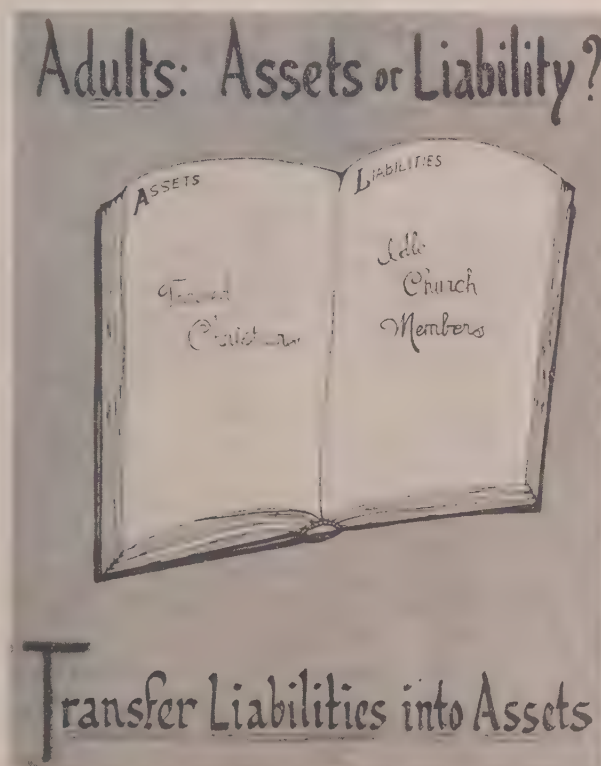 Adults: Assets or Liability?
ASSETS
LIABILITIES
Trained
Christians
Idle
Church
Members
Transfer Liabilities into Assets